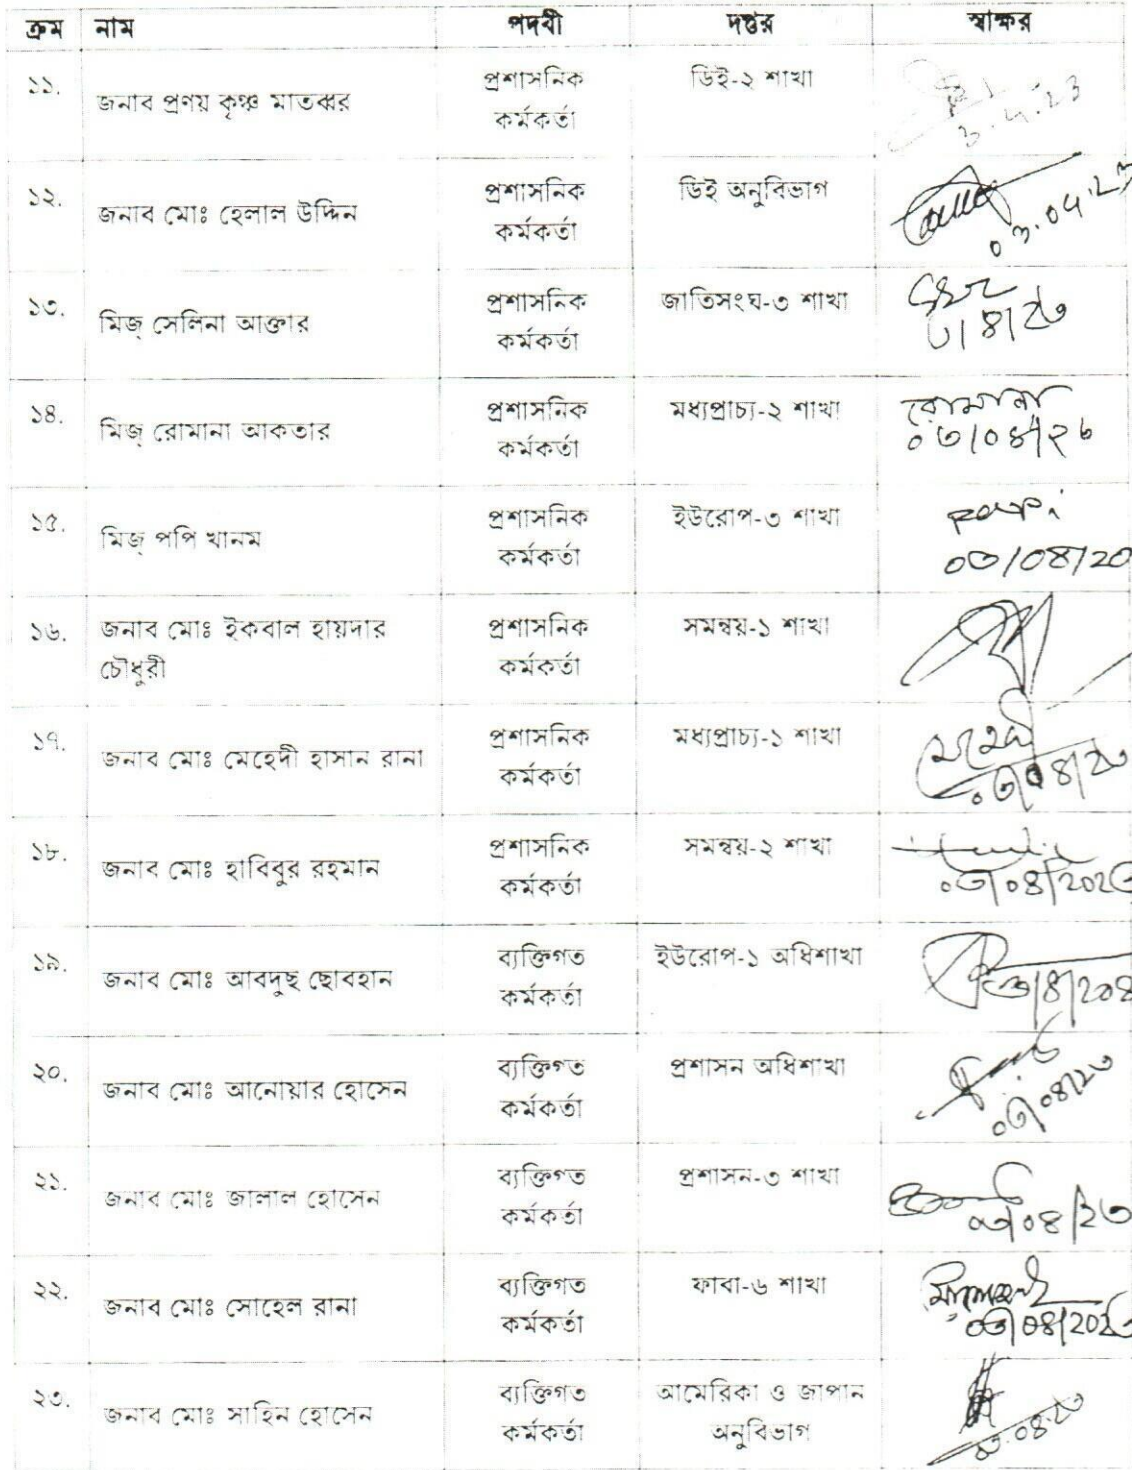 ক্রম নাম পদবী দপ্তর স্বাক্ষর
১১. জনাব প্রণয় কৃষ্ণ মাতব্বর প্রশাসনিক কর্মকর্তা ডিই-২ শাখা 3.4.23
১২. জনাব মোঃ হেলাল উদ্দিন প্রশাসনিক কর্মকর্তা ডিই অনুবিভাগ 03.04.23
১৩. মিজ্ সেলিনা আক্তার প্রশাসনিক কর্মকর্তা জাতিসংঘ-৩ শাখা ৩/৪/২৩
১৪. মিজ্ রোমানা আকতার প্রশাসনিক কর্মকর্তা মধ্যপ্রাচ্য-২ শাখা রোমানা ০৩/০৪/২৩
১৫. মিজ্ পপি খানম প্রশাসনিক কর্মকর্তা ইউরোপ-৩ শাখা popi ০৩/০৪/২০
১৬. জনাব মোঃ ইকবাল হায়দার চৌধুরী প্রশাসনিক কর্মকর্তা সমন্বয়-১ শাখা
১৭. জনাব মোঃ মেহেদী হাসান রানা প্রশাসনিক কর্মকর্তা মধ্যপ্রাচ্য-১ শাখা মেহেদী ০৩/০৪/২৩
১৮. জনাব মোঃ হাবিবুর রহমান প্রশাসনিক কর্মকর্তা সমন্বয়-২ শাখা ০৩/০৪/২০২৩
১৯. জনাব মোঃ আবদুছ ছোবহান ব্যক্তিগত কর্মকর্তা ইউরোপ-১ অধিশাখা
২০. জনাব মোঃ আনোয়ার হোসেন ব্যক্তিগত কর্মকর্তা প্রশাসন অধিশাখা ০৩/০৪/২৩
২১. জনাব মোঃ জালাল হোসেন ব্যক্তিগত কর্মকর্তা প্রশাসন-৩ শাখা ০৩/০৪/২৩
২২. জনাব মোঃ সোহেল রানা ব্যক্তিগত কর্মকর্তা ফাবা-৬ শাখা ০৩/০৪/২০২৩
২৩. জনাব মোঃ সাহিন হোসেন ব্যক্তিগত কর্মকর্তা আমেরিকা ও জাপান অনুবিভাগ ৩.০৪.২৩